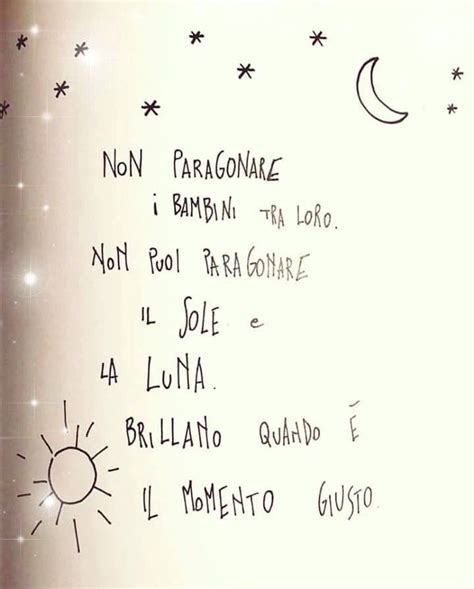 NON PARAGONARE
i BAMBINI TRA LORO.
NON PUOI PARAGONARE
IL SOLE e
LA LUNA.
BRILLANO QUANDO È
IL MOMENTO GIUSTO.